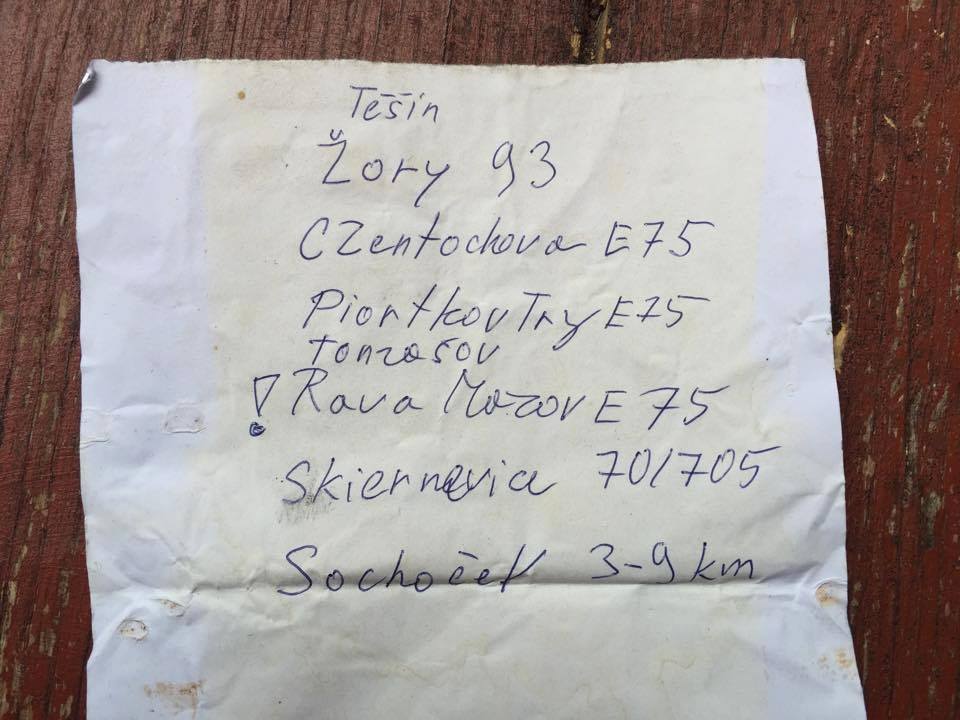 Těšín
Žory 93
Czentochova E75
Piortkov Try E75
tomašov
! Rava Mazov E75
Skiernevica 70/705
Sochočef 3-9 km